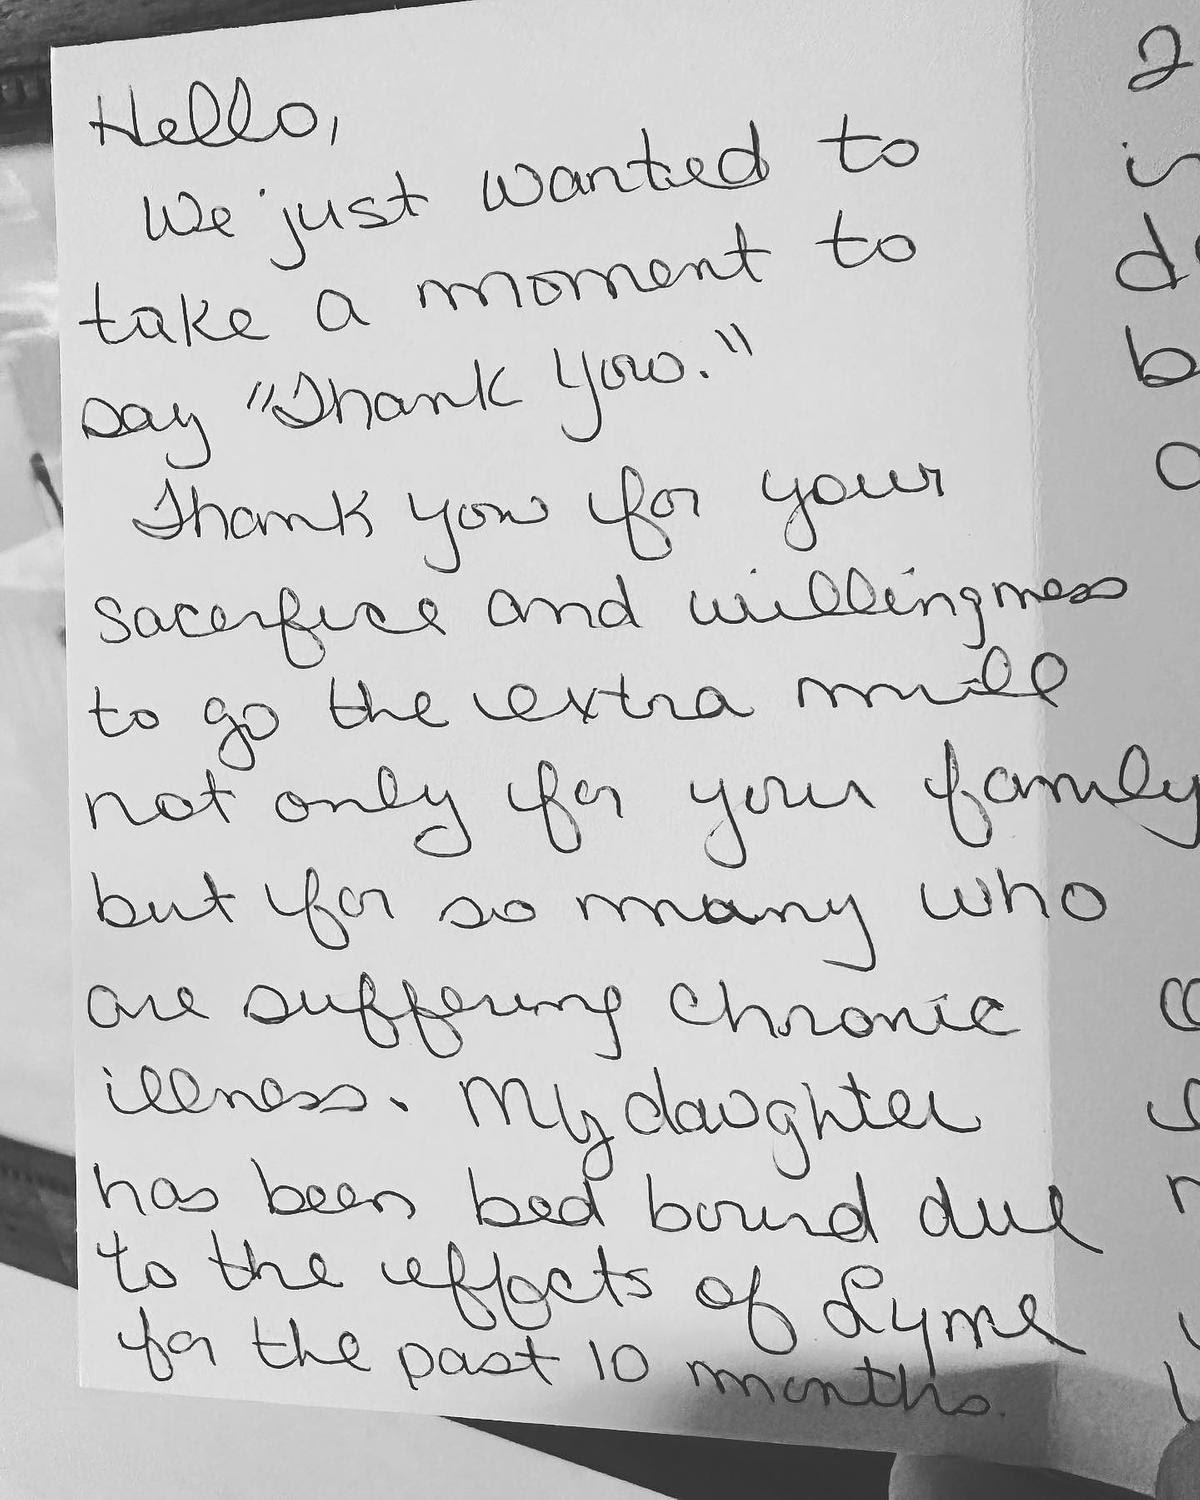 Hello,
We just wanted to
take a moment to
say "Thank You."
Thank you for your
sacerfice and willingness
to go the extra mile
not only for your family
but for so many who
are suffering chronic
illness. My daughter
has been bed bound due
to the effects of Lyme
for the past 10 months.